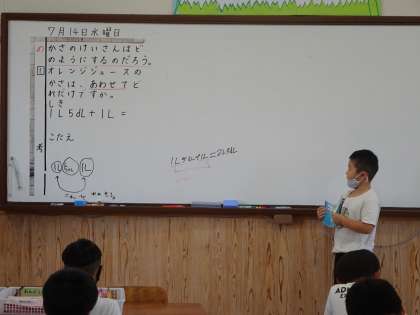 7月14日水曜日
めかさのけいさんはど
のようにするのだろう。
1オレンジジュースの
かさは、あわせてど
れだけですか。
しき
1L5dL+1L=
こたえ
考
1L5dL+1L=2L5dL
1L 5dL 1L